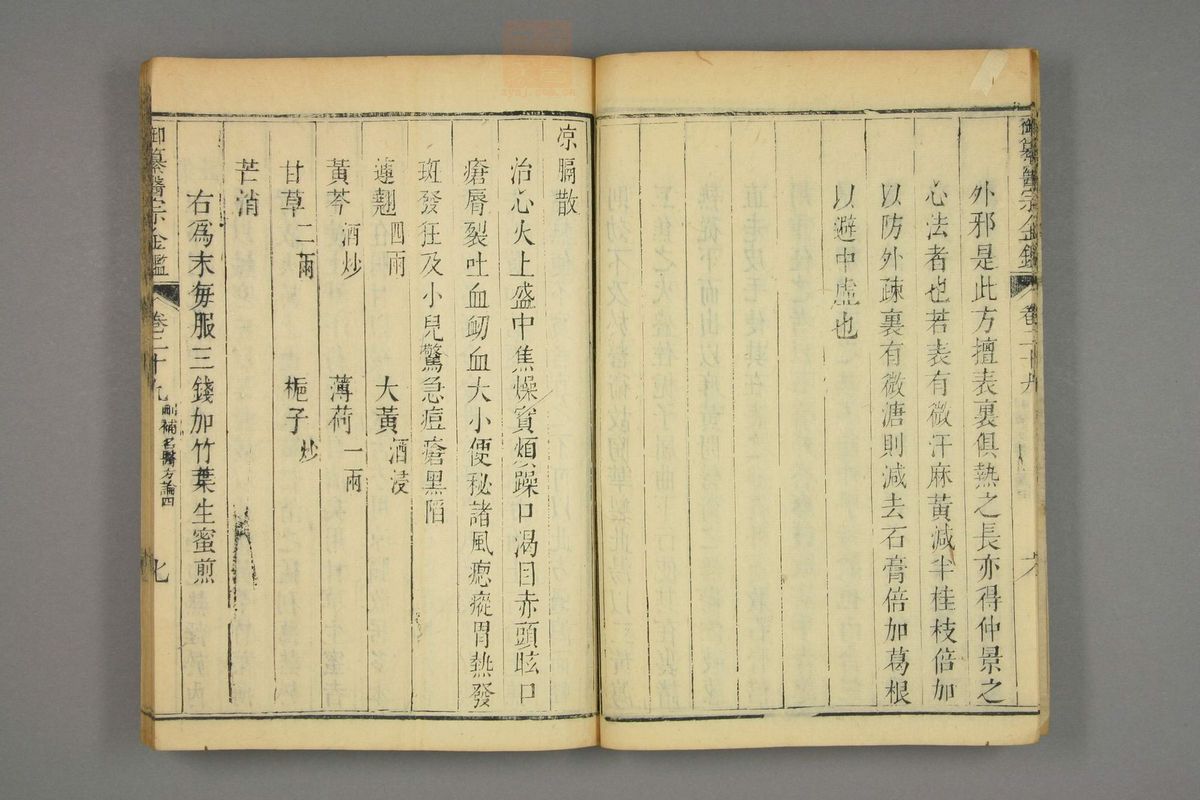 外邪是此方擅表裏俱熱之長亦得仲景之
心法者也若表有微汗麻黃減半桂枝倍加
以防外疎裏有微溏則減去石膏倍加葛根
以避中虛也
凉膈散
治心火上盛中焦燥實煩躁口渴目赤頭眩口
瘡唇裂吐血衂血大小便秘諸風瘛瘲胃熱發
斑發狂及小兒驚急痘瘡黑陷
連翹四兩 大黃酒浸
黃芩酒炒 薄荷一兩
甘草二兩 梔子炒
芒消
右為末每服三錢加竹葉生蜜煎
御纂醫宗金鑑 卷二十九 刪補名醫方論四